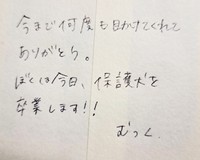 今まで何度も目かけてくれて
ありがとう。
ぼくは今日、保護犬を
卒業します!!
むっく